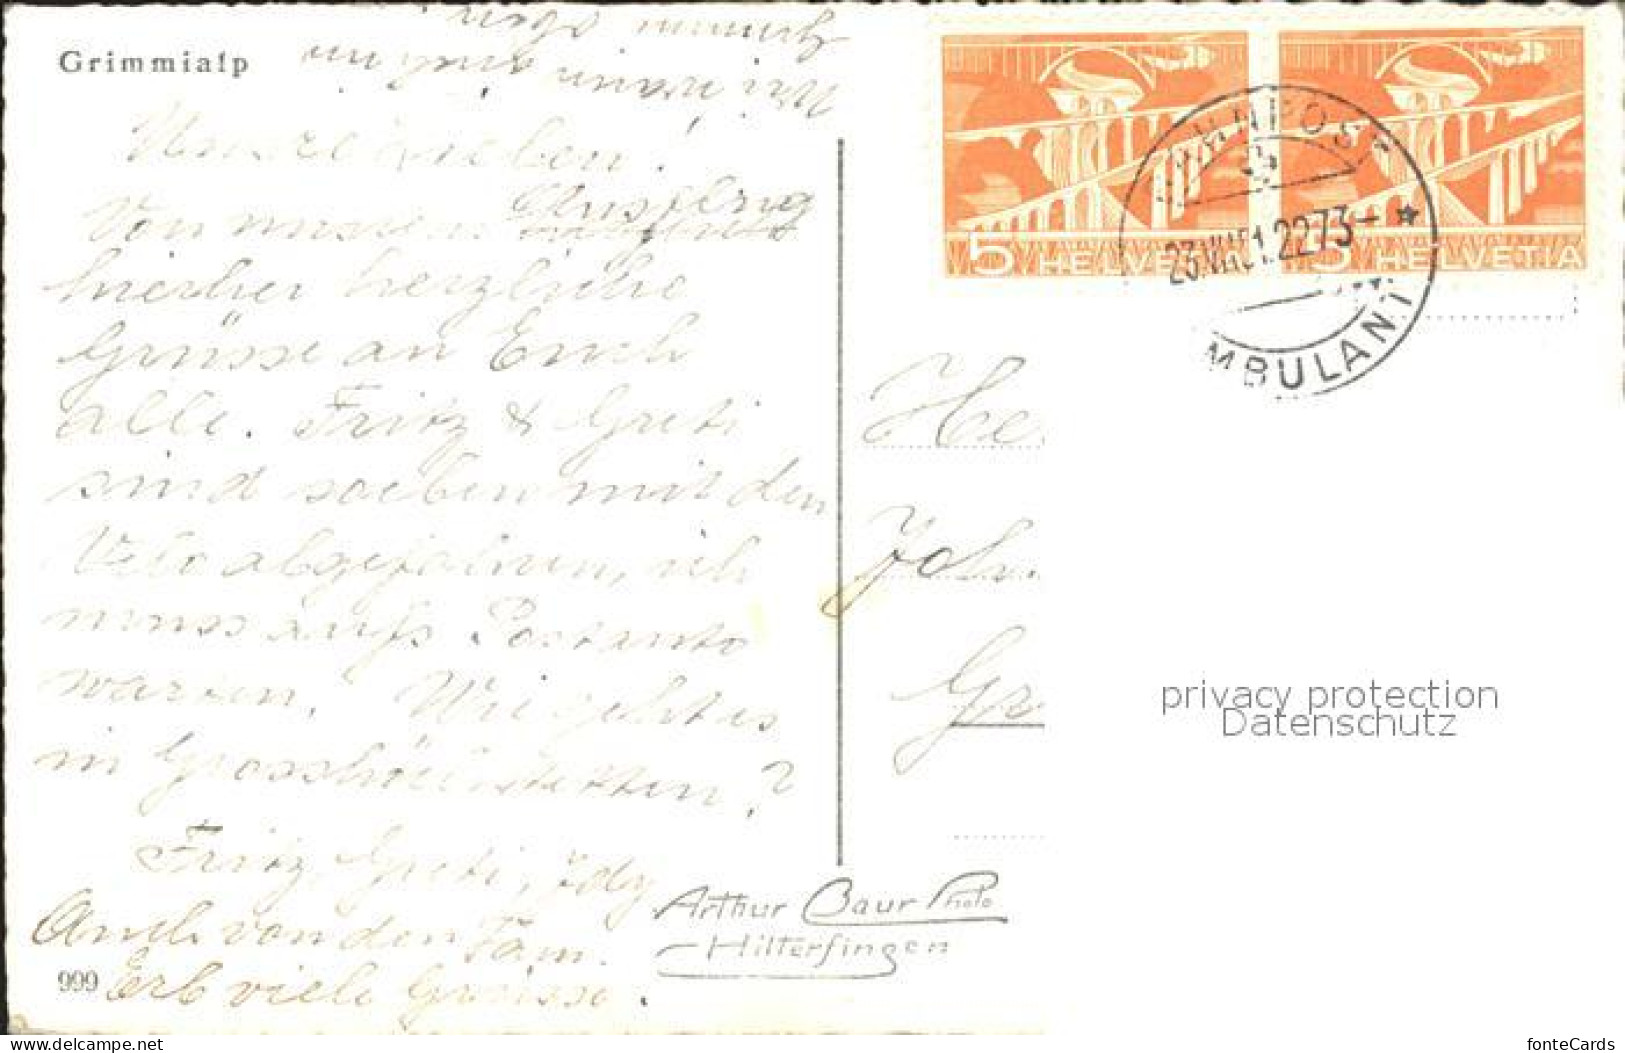 Grimmialp
Wir waren auch im
oben
Unsere Lieben!
Von unserem Ausflug
hierher herzliche
Grüsse an Euch
alle. Fritz & Greti
sind soeben mit den
Velo abgefahren, ich
muss aufs Postauto
warten. Wie geht es
in Grosshöchstetten?
Fritz, Greti, Idy
Auch von den Fam.
Erb viele Grüsse.
999
Arthur Baur Photo
Hilterfingen
5 HELVETIA
5 HELVETIA
BAHNPOST
23.VII.51.2273-★
AMBULANT
He
Joh.
Gr
privacy protection
Datenschutz
delcampe.net
fonteCards